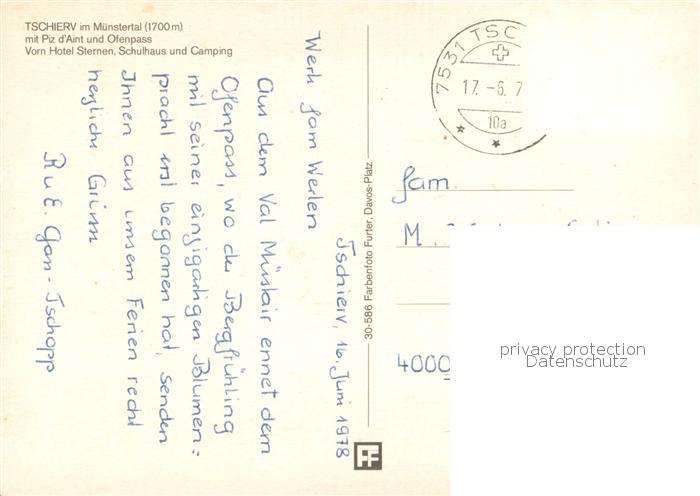 TSCHIERV im Münstertal (1700 m)
mit Piz d'Aint und Ofenpass
Vorn Hotel Sternen, Schulhaus und Camping
Tschierv, 16. Juni 1978
Werte Fam Werlen
Aus dem Val Müstair ennet dem
Ofenpass, wo der Bergfrühling
mit seiner einzigartigen Blumen=
pracht erst begonnen hat, senden
Ihnen aus unsern Ferien recht
herzliche Grüsse
R u E. Gan-Tschopp
30-586 Farbenfoto Furter, Davos-Platz
FF
7531 TSC
17. -6. 7
10a
Fam.
M.
4000
privacy protection
Datenschutz